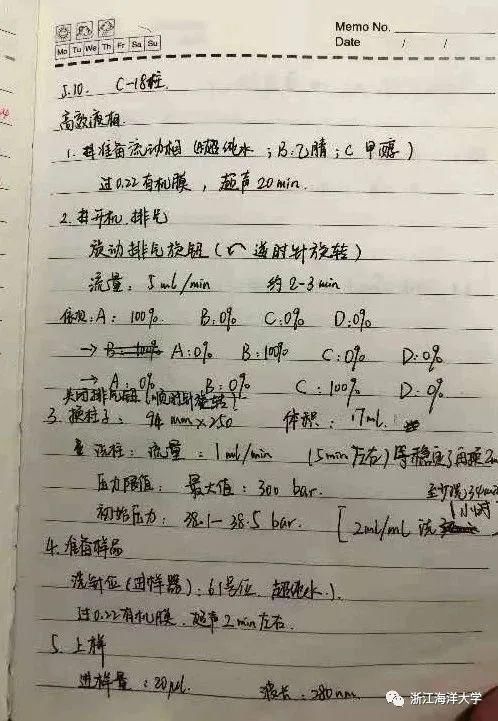 Memo No.
Mo Tu We Th Fr Sa Su
Date / /
5.10. C-18柱.
高效液相
1. 准备流动相 (A超纯水 ; B:乙腈 ; C 甲醇 )
过0.22有机膜 , 超声20min.
2. 开机, 排气
旋动排气旋钮 ( 逆时针旋转 )
流量: 5ml/min 约2-3min
依次: A: 100% B: 0% C: 0% D: 0%
→ A: 0% B: 100% C: 0% D: 0%
→ A: 0% B: 0% C: 100% D: 0%
关闭排气旋钮 (顺时针旋转)
3. 换柱子: 94 mm×250 体积: 17ml.
流柱: 流量 = 1ml/min (5min左右) 等稳定了再换
压力限值: 最大值: 300 bar. 至少洗34min
初始压力: 38.1-38.5 bar. [2ml/ml 洗 1小时
4. 准备样品
洗针位 (进样器): 61号位. 超纯水.
过0.22有机膜. 超声2min左右.
5. 上样
进样量: 20μl. 波长: 280nm.
浙江海洋大学